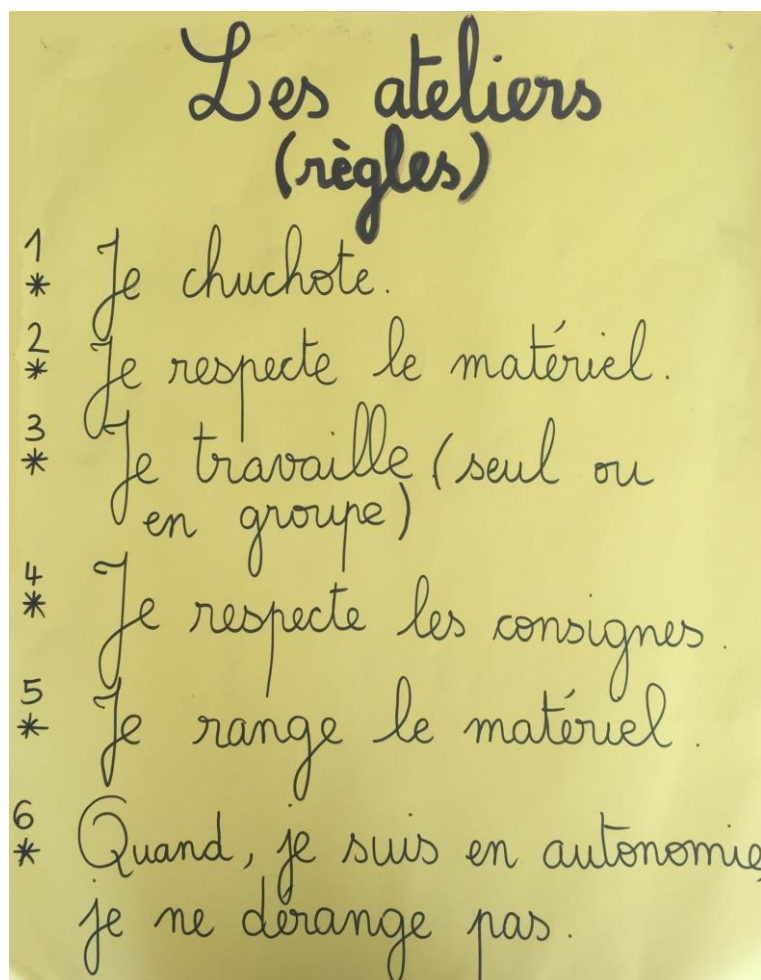 Les ateliers
(règles)
1
* Je chuchote.
2
* Je respecte le matériel.
3
* Je travaille (seul ou
en groupe)
4
* Je respecte les consignes.
5
* Je range le matériel.
6
* Quand, je suis en autonomie,
je ne dérange pas.